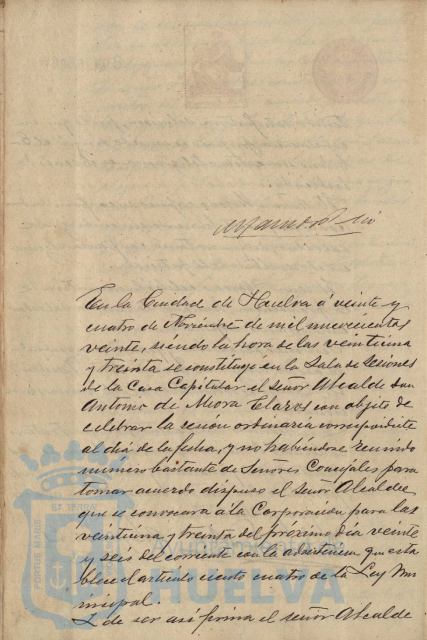 En la Ciudad de Huelva á veinte y
cuatro de Noviembre de mil novecientos
veinte, siendo la hora de las veintiuna
y treinta se constituyó en la Sala de Sesiones
de la Casa Capitular el señor Alcalde don
Antonio de Mora Claros con objeto de
celebrar la sesión ordinaria correspondiente
al dia de la fecha, y no habiéndose reunido
número bastante de Señores Concejales para
tomar acuerdo dispuso el señor Alcalde
que se convocara á la Corporación para las
veintiuna y treinta del próximo dia veinte
y seis del corriente con la advertencia que esta
blece el artículo ciento cuatro de la Ley Mu
nicipal.
Y de ser asi firma el señor Alcalde
PORTUS MARIS
HUELVA